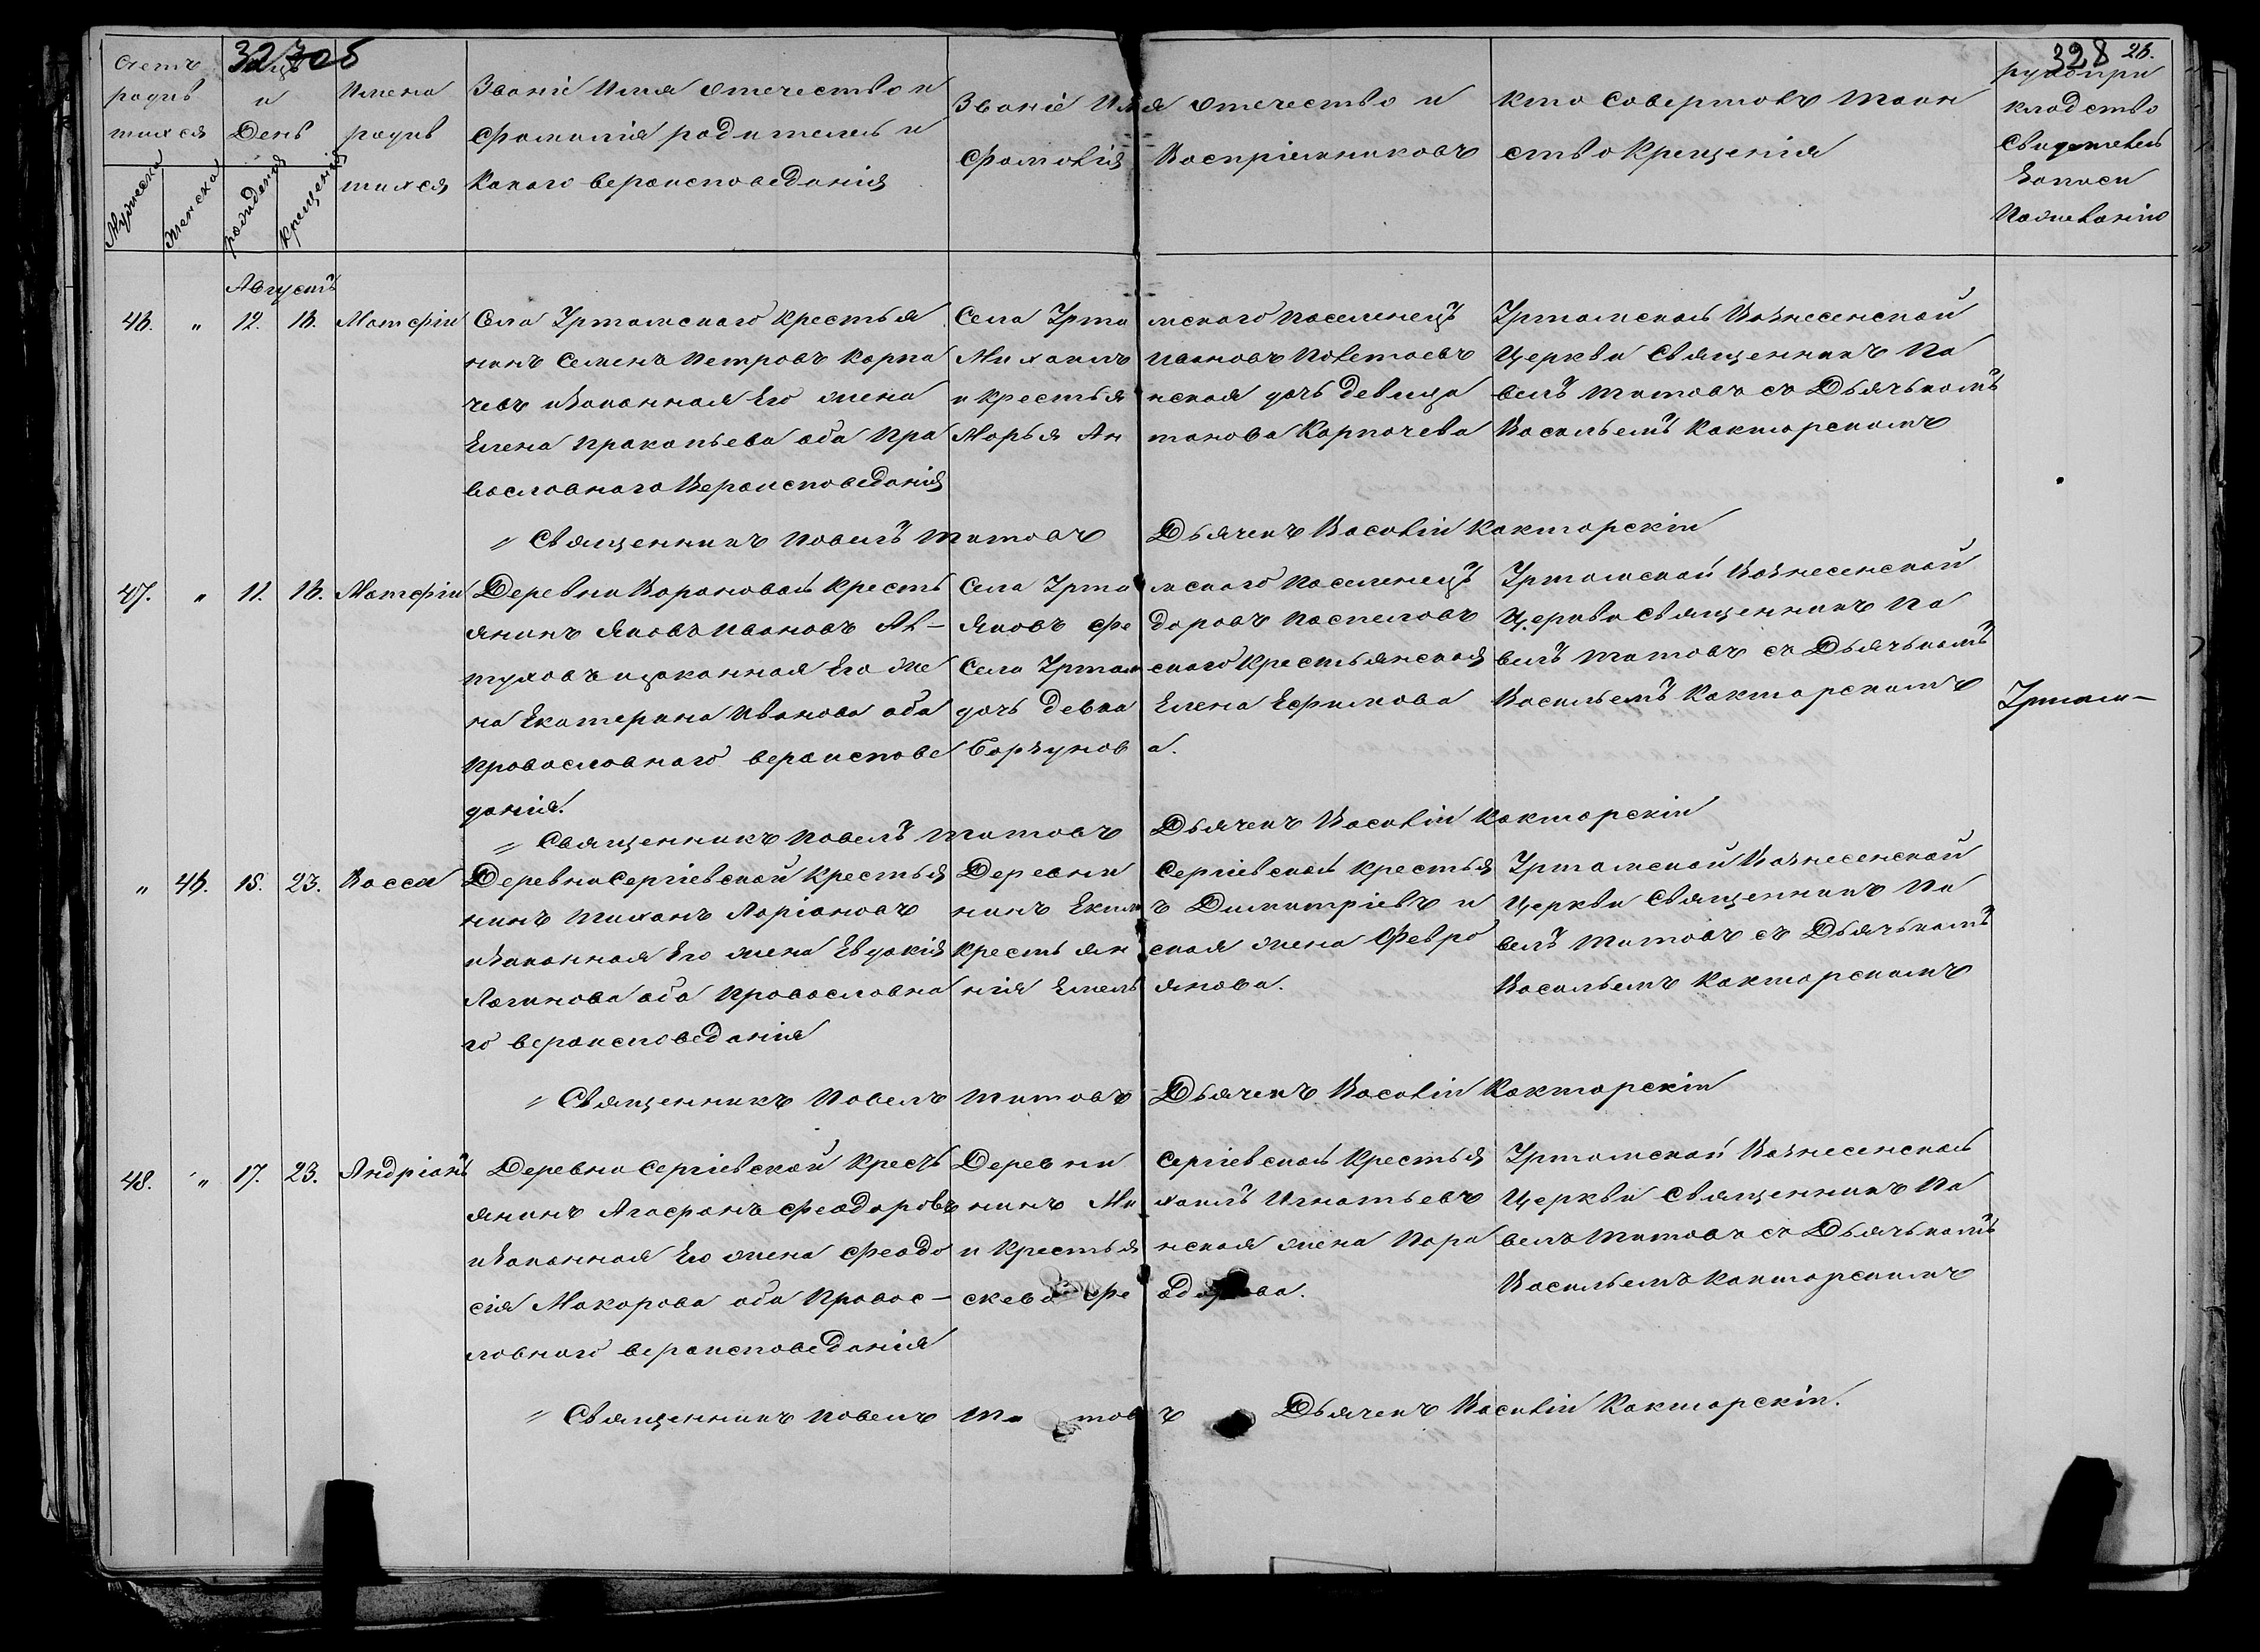 327 об
328 26.
Счетъ родив шихся
Мужеска
Женска
Мцъ и День
рождения
крещения
Имена родив шихся
Званiе Имя отечество и
Фамилiя родителей и
Какаго вероисповеданiя
Званiе Имя отечество и
Фамилiя Воспрiемниковъ
Кто совершовъ Таин
ство Крещенiя
рукопри кладство Свидетель Записи По желанiю
Августъ
46. " 12. 16. Матфiй
Села Уртамскаго Крестья
нинъ Семенъ Петровъ Карпа
чевъ изаконная Его жена
Елена Пракопьева оба Пра
вославнаго Вероисповеданiя
Села Уртамскаго Поселенецъ
Михаилъ Ивановъ Полетаевъ
и Крестьянская дочь девица
Марья Антонова Карпачева
Уртамской Вознесенской
Церкви Священникъ Па
велъ Титовъ съ Дьячькомъ
Васильемъ Какторскимъ
" Священникъ Павелъ Титовъ Дьячекъ Василiй Какторскiй
47. " 11. 16. Матфiй
Деревни Вороновой Кресть
янинъ Яковъ Ивановъ Ал-
туховъ изаконная Его же
на Екатерина Иванова оба
Православнаго вероиспове
данiя.
Села Уртамскаго Поселенецъ
Яковъ Федоровъ Поспеловъ
Села Уртамскаго Крестьянская
дочь девка Елена Ефимова
Борзунова.
Уртамской Вознесенской
Церкви Священникъ Па
велъ Титовъ съ Дьячькомъ
Васильемъ Какторскимъ
Уртам-
" Священникъ Павелъ Титовъ Дьячекъ Василiй Какторскiй
" 46. 15. 23. Васса
Деревни Сергiевской Крестья
нинъ Тиханъ Ларiановъ
изаконная Его жена Евдокiя
Логинова оба Православна
го вероисповеданiя
Деревни Сергiевской Крестья
нинъ Екимъ Димитрiевъ и
Крестьянская жена Февро
нiя Емельянова.
Уртамской Вознесенской
Церкви Священникъ Па
велъ Титовъ съ Дьячькомъ
Васильемъ Какторскимъ
" Священникъ Павелъ Титовъ Дьячекъ Василiй Какторскiй
48. " 17. 23. Андрiанъ
Деревни Сергiевской Кресть
янинъ Агафонъ Феодоровъ
изаконная Его жена Феодо
сiя Макарова оба Правос-
лавнаго вероисповеданiя
Деревни Сергiевской Крестья
нинъ Михаилъ Игнатьевъ
и Крестьянская жена Пара
скева Феодорова.
Уртамской Вознесенской
Церкви Священникъ Па
велъ Титовъ съ Дьячькомъ
Васильемъ Какторскимъ
" Священникъ Павелъ Титовъ Дьячекъ Василiй Какторскiй.